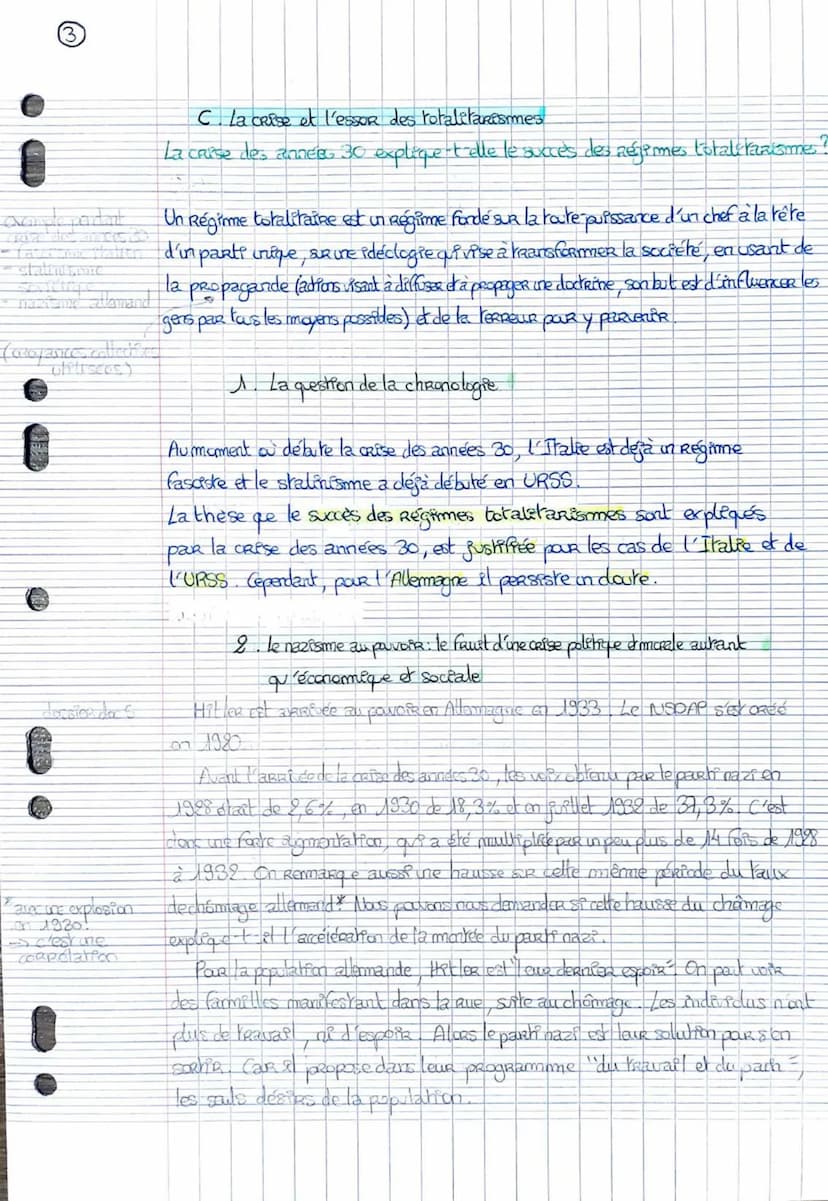 3
C. La crise et l'essor des totalitarismes
La crise des années 30 explique-t-elle le succès des régimes totalitarismes ?
Un Régime totalitaire est un Régime fondé sur la toute puissance d'un chef à la tête
d'un parti unique, sur une idéologie qui vise à transformer la société, en usant de
la propagande (actions visant à diffuser et à propager une doctrine, son but est d'influencer les
gens par tous les moyens possibles) et de la terreur pour y parvenir.
exemple pendant
crise des années 30
- fascisme italien
- stalinisme
soviétique
- nazisme allemand
(croyances collectives
utilisées)
1. La question de la chronologie
Au moment où débute la crise des années 30, l'Italie est déjà un Régime
fasciste et le stalinisme a déjà débuté en URSS.
La thèse que le succès des Régimes totalitarismes sont expliqués
par la crise des années 30, est justifiée pour les cas de l'Italie et de
l'URSS. Cependant, pour l'Allemagne il persiste un doute.
2. Le nazisme au pouvoir : le fruit d'une crise politique et morale autant
qu'économique et sociale
dossier doc 5
Hitler est arrivée au pouvoir en Allemagne en 1933. Le NSDAP s'est créé
en 1920.
Avant l'arrivée de la crise des années 30, les voix obtenu par le parti nazi en
1928 était de 2,6%, en 1930 de 18,3% et en juillet 1932 de 37,3%. C'est
donc une forte augmentation, qui a été multipliée par un peu plus de 14 fois de 1928
à 1932. On Remarque aussi une hausse sur cette même période du taux
de chômage allemand* Nous pouvons nous demander si cette hausse du chômage
explique-t-il l'accélération de la montée du parti nazi.
* avec une explosion
en 1930!
-> c'est une
corrélation
Pour la population allemande, Hitler est "leur dernier espoir". On peut voir
des familles manifestant dans la rue, suite au chômage. Les individus n'ont
plus de travail, ni d'espoir. Alors le parti nazi est leur solution pour s'en
sortir. Car il propose dans leur programme "du travail et du pain",
les seuls désirs de la population.